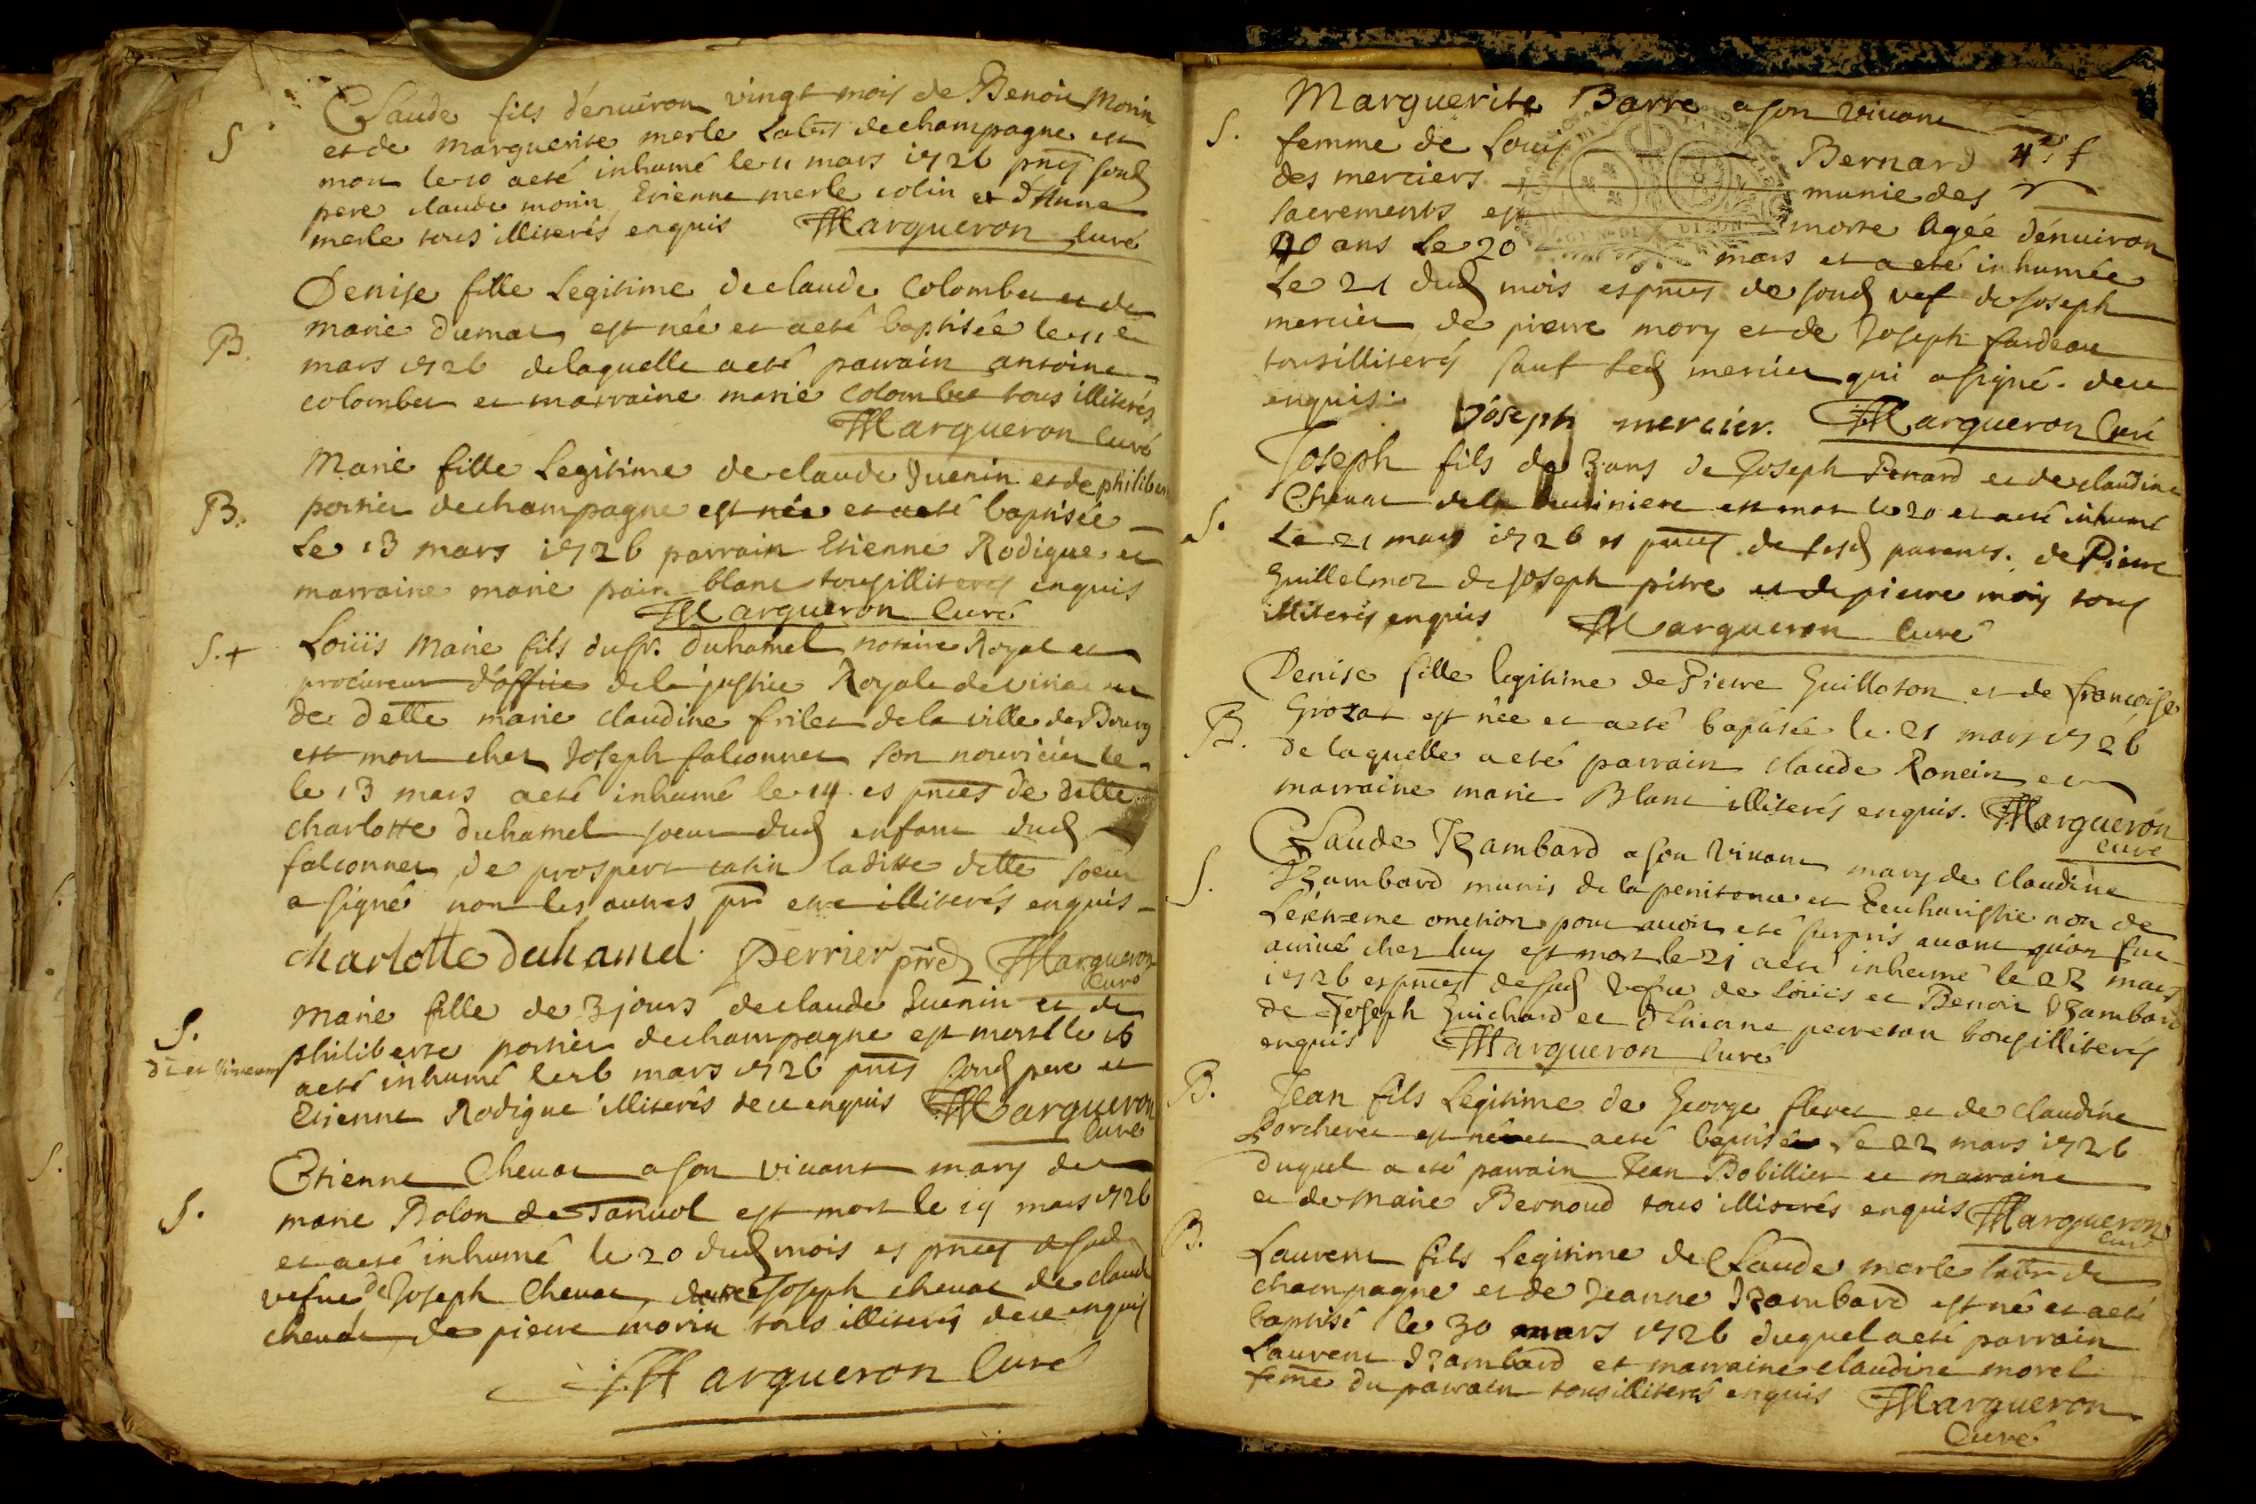 S
Claude fils d'enuiron vingt mois de Benoit Morin
et de marguerite merle labrs de champagne est
mort le 10 a eté inhumé le 11 mars 1726 pnts sond
pere claude morin Etienne merle colin et d'Anne
merle tous illiterés enquis Margueron curé
Denise fille Legitime de claude Colombet et de
B.
marie dumat est née et a eté baptisée le 11e
mars 1726 de laquelle a eté parrain antoine
colombet et marraine marie colombet tous illiterés
Margueron Curé
Marie fille Legitime de claude Guenin et de philiberte
B.
portier de champagne est née et a eté baptisée
Le 13 mars 1726 parrain Etienne Rodigue et
marraine marie pain blanc tous illiterés enquis
Margueron Curé
S. +
Loüis Marie fils du Sr. duhamel notaire Royal et
procureur d'office de la justice Royale de et
de delle marie claudine frilet de la ville de Bourg
est mort chez Joseph falconnet son nourricier le
le 13 mars a eté inhumé le 14 es pntes de delle
charlotte duhamel soeur dud enfant dud
falconnet de prospert catin laditte delle soeur
a signé non les autres pr etre illiterés enquis
charlotte duhamel. Perrier Margueron
Curé
S.
Marie fille de 3 jours de claude Guenin et de
philiberte portier de champagne est morte le 15
a eté inhumé le 16 mars 1726 pnts sond pere et
Etienne Rodigue illiterés de ce enquis Margueron
Curé
S.
Etienne Cheuat a son viuant mary de
marie Bolon de Tanuol est mort le 19 mars 1726
et a eté inhumé le 20 dud mois es pnces de sad
vefue de Joseph Cheuat, Joseph cheuat de claude
cheuat de pierre morin tous illiterés de ce enquis
Margueron Curé
S.
Marguerite Barre a son viuant
femme de Louis Bernard
des merciers munie des
sacrements est morte agée d'enuiron
40 ans le 20 mars et a eté inhumée
Le 21 dud mois es pnces de sond vef de Joseph
mercier de pierre mory et de Joseph fardeau
tous illiterés sauf led mercier qui a signé. de ce
enquis.
Joseph mercier. Margueron Curé
Joseph fils de 3 ans de Joseph Penard et de claudine
S.
Cheuat de la est mort le 20 et a eté inhumé
Le 21 mars 1726 es pnces de sesd parents. de Pierre
Guillelmoz de Joseph pitre et de pierre mory tous
illiterés enquis Margueron Curé
Denise fille legitime de Pierre Guilloton et de françoise
B.
Grozat est née et a eté baptisée le 21 mars 1726
de laquelle a eté parrain claude Roncin et
marraine marie Blanc illiterés enquis. Margueron
curé
S.
Claude Izambard a son viuant mary de claudine
Izambard munis de la penitence et Eucharistie non de
L'extreme onction pour auoir eté surpris auant qu'on fut
arriué chez luy est mort le 21 a eté inhumé le 22 mars
1726 es pnces de sad vefue de Loüis et Benoit Izambard
de Joseph Guichard et d'Etienne peureton tous illiterés
enquis Margueron Curé
B.
Jean fils Legitime de George fleret et de claudine
Porcheret est né et a eté baptisé Le 22 mars 1726
duquel a eté parrain Jean Bobillier et marraine
et de Marie Bernoud tous illiterés enquis Margueron
curé
B.
Laurent fils Legitime de Claude merle labr de
champagne et de Jeanne Izambard est né et a eté
baptisé le 30 mars 1726 duquel a eté parrain
Laurent Izambard et marraine claudine morel
feme du parrain tous illiterés enquis Margueron
Curé